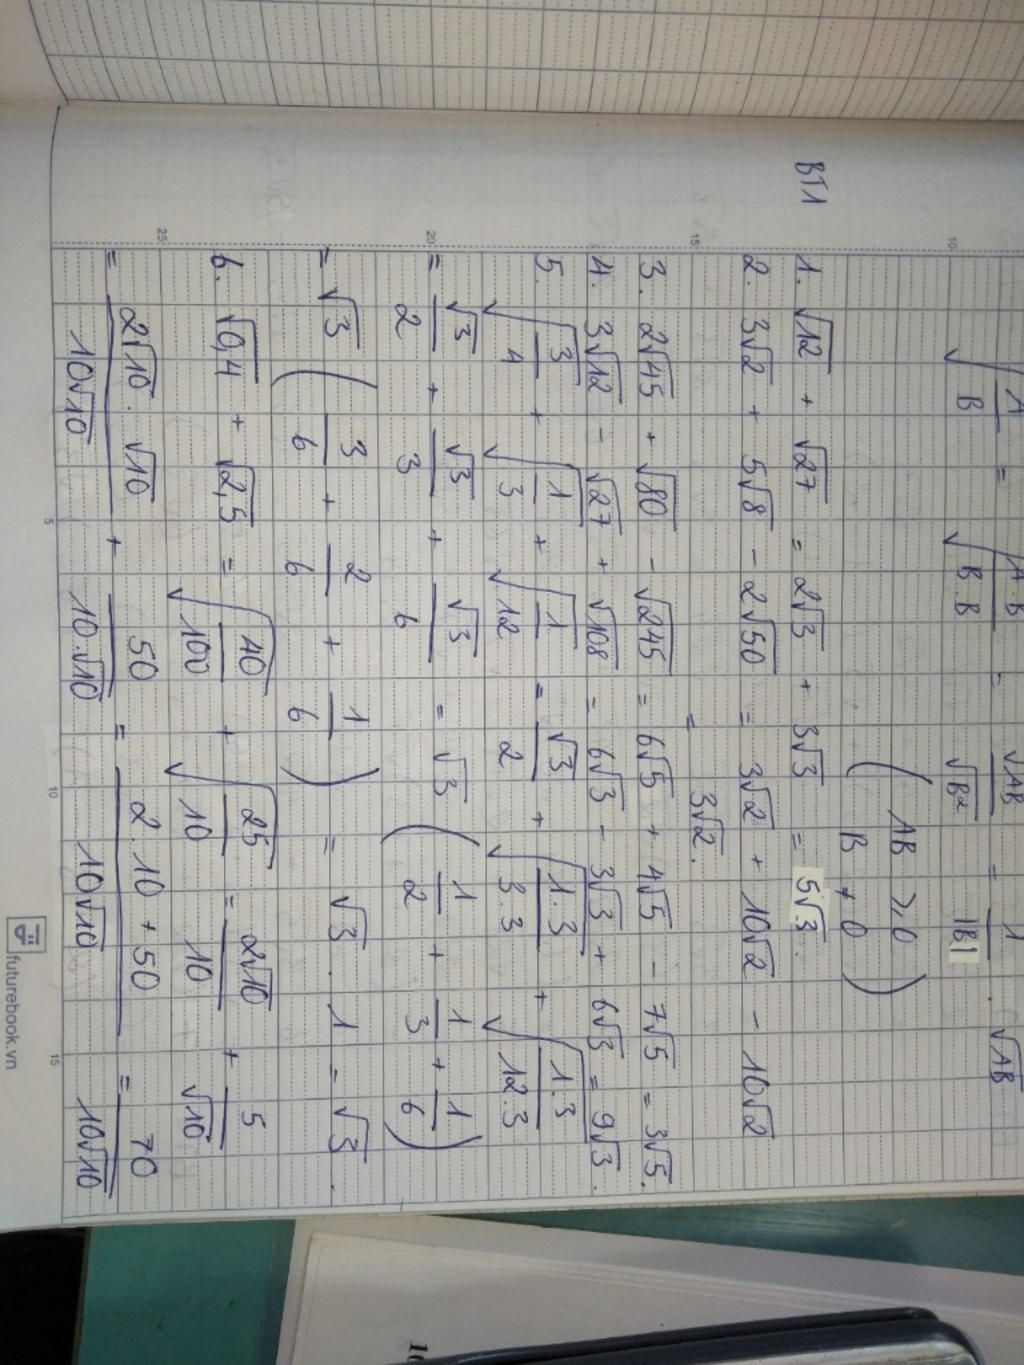 √(A/B) = √(A.B/B.B) = √AB/√B² = 1/|B| . √AB
( AB ⩾ 0
B ≠ 0 )
BT1
1. √12 + √27 = 2√3 + 3√3 = 5√3.
2. 3√2 + 5√8 - 2√50 = 3√2 + 10√2 - 10√2
= 3√2.
3. 2√45 + √80 - √245 = 6√5 + 4√5 - 7√5 = 3√5.
4. 3√12 - √27 + √108 = 6√3 - 3√3 + 6√3 = 9√3.
5. √(3/4) + √(1/3) + √(1/12) = √3/2 + √(1.3/3.3) + √(1.3/12.3)
= √3/2 + √3/3 + √3/6 = √3 (1/2 + 1/3 + 1/6)
= √3 (3/6 + 2/6 + 1/6) = √3 . 1 = √3.
6. √0,4 + √2,5 = √(40/100) + √(25/10) = 2√10/10 + 5/√10
= 2√10 . √10/10√10 + 50/10.√10 = 2.10 + 50/10√10 = 70/10√10
10
15
20
25
5
10
15
futurebook.vn